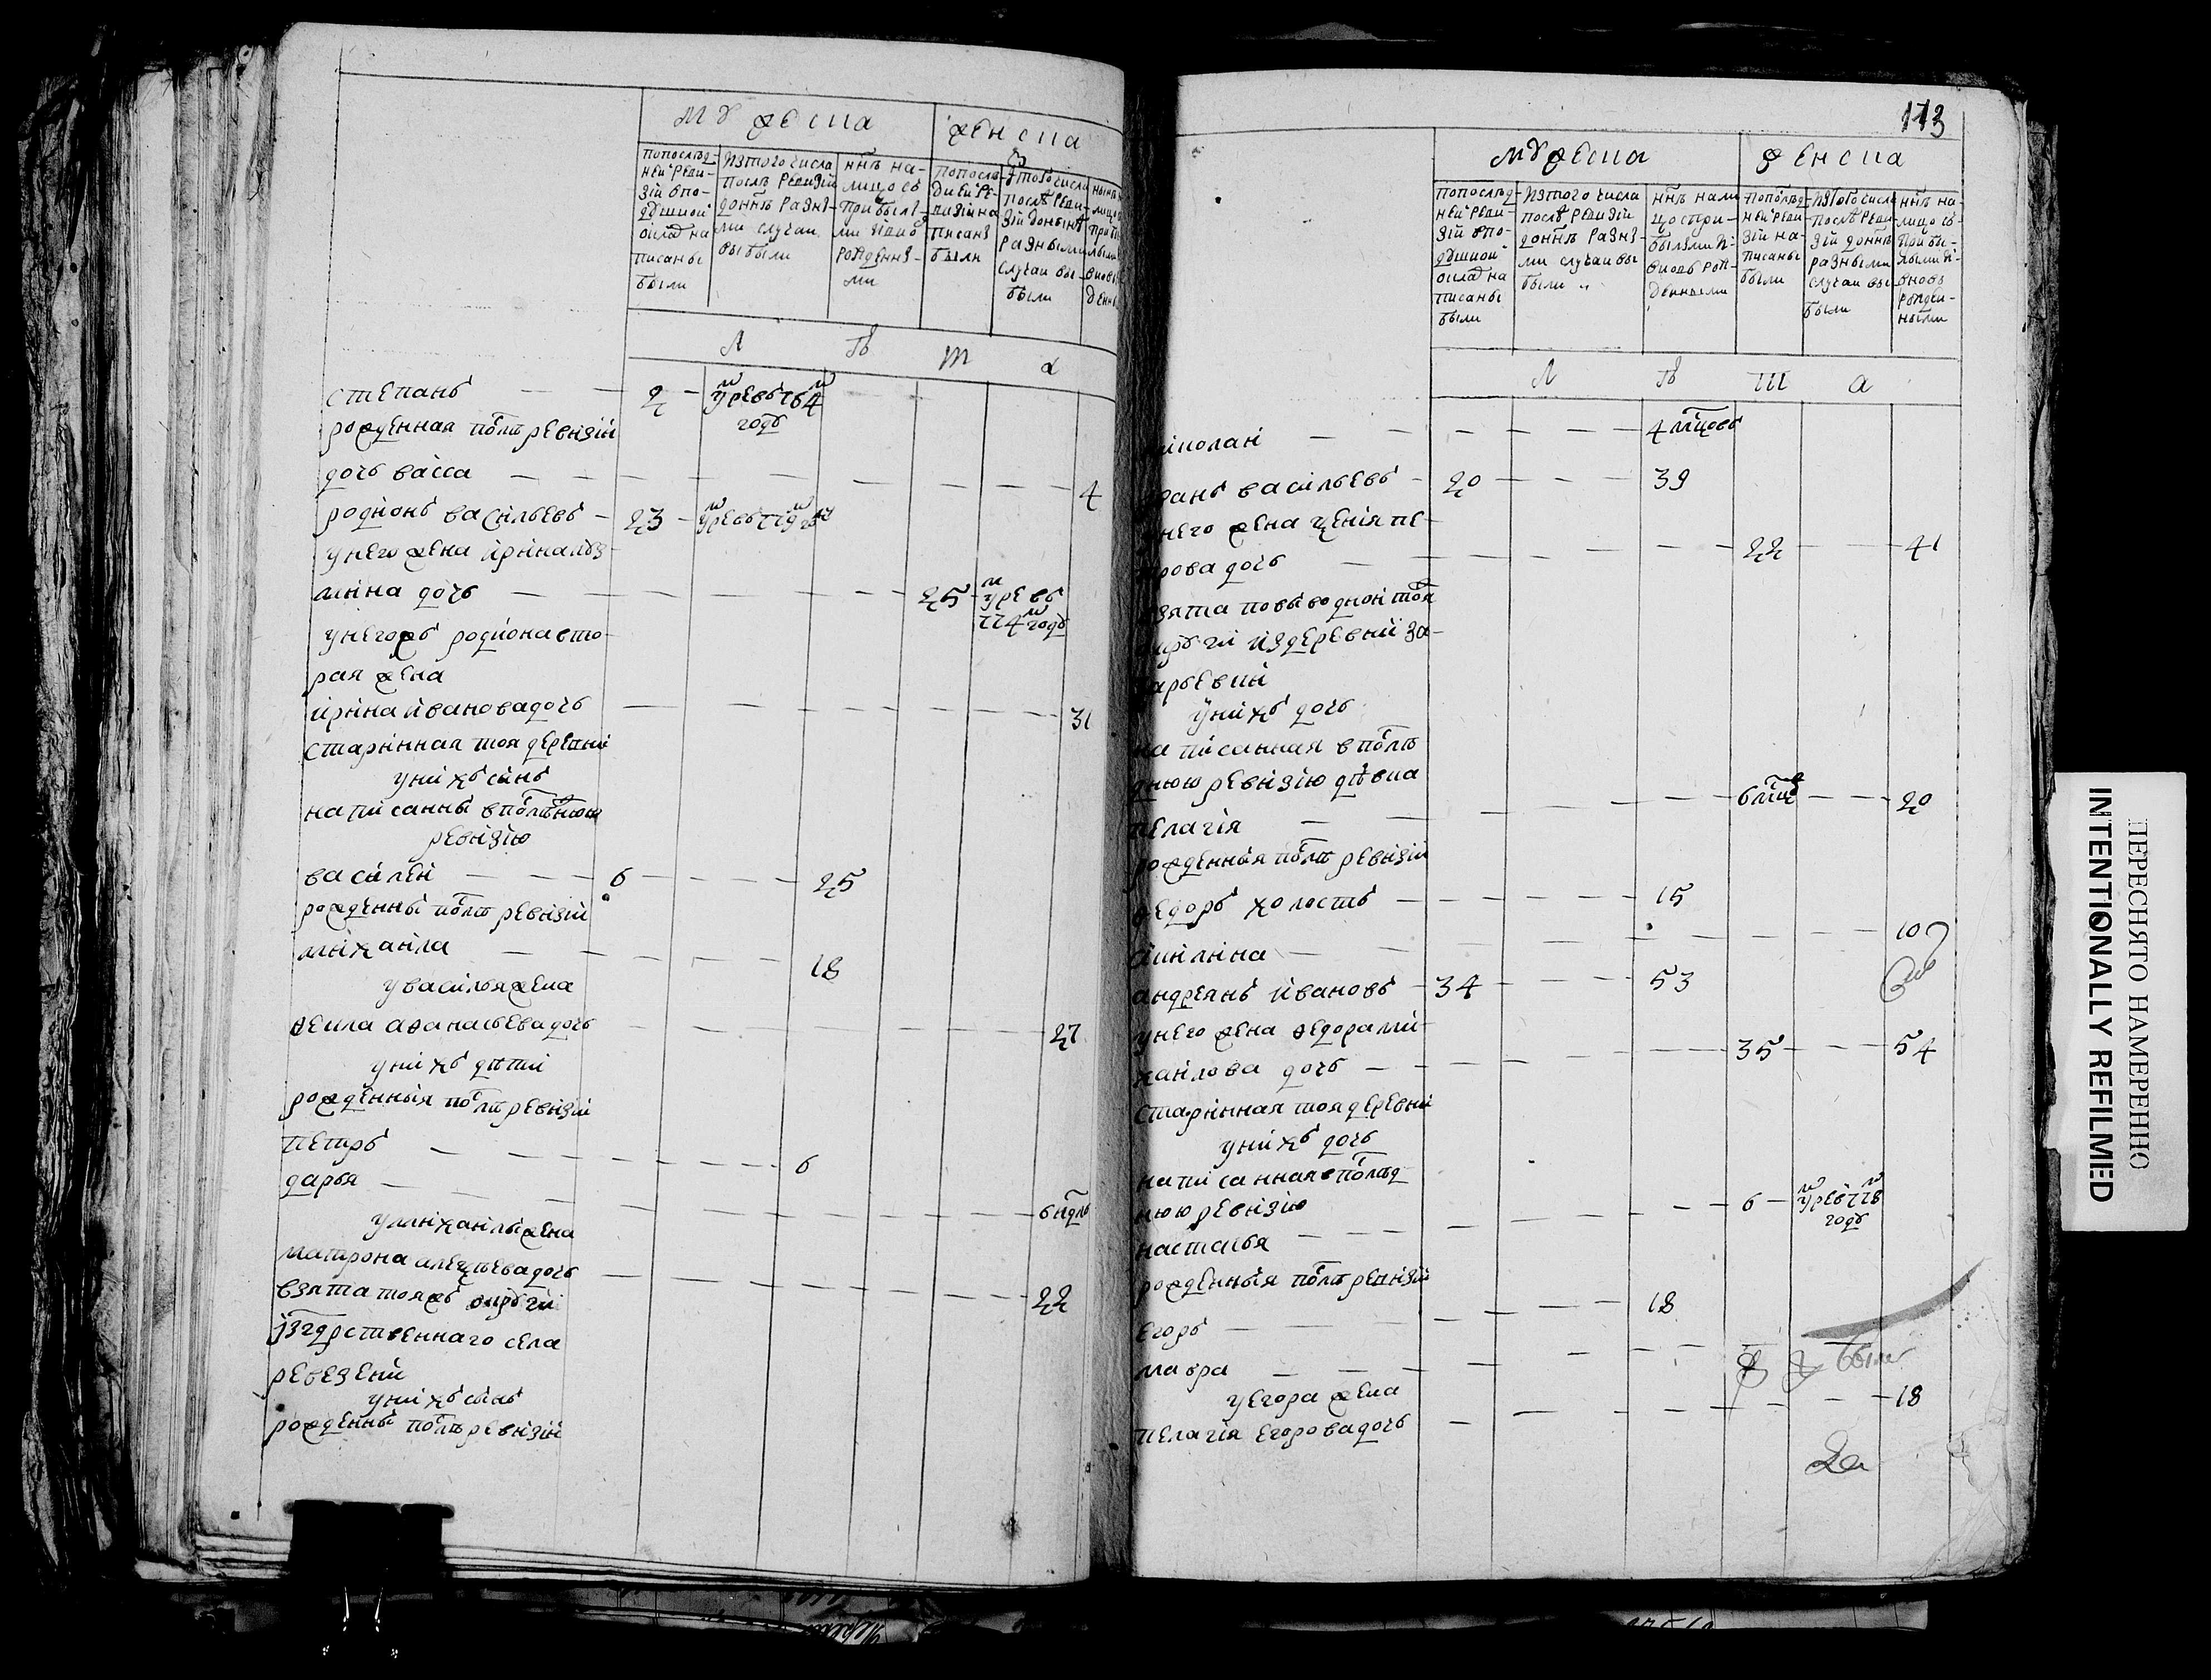 мужеска
женска
попослѣд-
ней реви-
зіи впо-
душной
оклад на
писаны
были
изтого числа
послѣ ревизіи
донн҃ѣ разны-
ми случаи
выбыли
нн҃ѣ на-
лицо съ
прибылы-
ми и вно
рожденны-
ми
попослѣ-
дней ре-
визіи на
писаны
были
изтого числа
послѣ реви-
зіи донынѣ
разными
случаи вы-
были
л
ѣ
т
а
степанъ 2 умре въ 784 м
году
рожденная посл ревизіи
дочь васса 4
родионъ васильевъ 23
у него жена ирина куз
мина дочь 25 умре въ
774 м году
у негожъ родиона вто-
рая жена
ирина иванова дочь 31
старинная тоя деревни
у нихъ сынъ
написанны в последнюю
ревизію
василей 6 25
рожденны посл ревизіи
михаила 18
у василья жена
ѳекла аѳанасьева дочь 27
у нихъ дѣти
рожденныя посл ревизіи
петръ 6
дарья 6 ндль
у михаилы жена
матрона алеѯѣева дочь 22
взята тояжъ округи
із гдрственнаго села
ревезени
у нихъ сынъ
рожденны посл ревизіи
113
мужеска
женска
попослѣд-
ней реви-
зіи впо-
душной
оклад на
писаны
были
изтого числа
послѣ ревизіи
донн҃ѣ разны-
ми случаи вы
были
нн҃ѣ нали
цо спри-
былыми и-
вновь рож-
денными
попослѣд-
ней реви-
зіи на-
писаны
были
изтого числа
послѣ реви-
зіи донн҃ѣ
разными
случаи вы
были
нн҃ѣ на-
лицо съ-
прибы-
лыми и-
вновь
рожден-
ными
л
ѣ
т
а
николаи 4 мцовъ
иванъ васильевъ 20 39
у него жена ѯенія пе-
трова дочь 22 41
взята повыводнои тоя
округи из деревни за-
харьевки
у нихъ дочь
написанная в послѣ
днюю ревизію дѣвка
пелагія 6 мцъ 20
рожденныя посл ревизіи
ѳедоръ холостъ 15
акилина 10
андреянъ ивановъ 34 53
у него жена ѳедора ми-
хаилова дочь 35 54
старинная тоя деревни
у нихъ дочь
написанная в послѣд
нюю ревизію
настасья 6 умре в 778 м
году
рожденныя посл ревизіи
егоръ 18
мавра 8 8
у егора жена
пелагія егорова дочь 18
ПЕРЕСНЯТО НАМЕРЕННО
INTENTIONALLY REFILMED